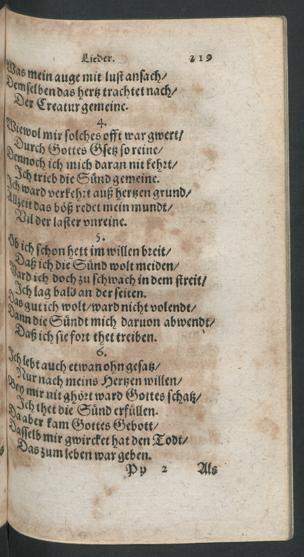 Lieder. 219
Was mein auge mit lust ansach/
Demselben das hertz trachtet nach/
Der Creatur gemeine.
4.
Wiewol mir solches offt war gwert/
Durch Gottes Gsetz so reine/
Dennoch ich mich daran nit kehrt/
Ich trieb die Sünd gemeine.
Ich ward verkehrt auß hertzen grund/
Allzeit das böß redet mein mundt/
Vil der laster vnreine.
5.
Ob ich schon hett im willen breit/
Daß ich die Sünd wolt meiden/
Ward ich doch zu schwach in dem streit/
Ich lag bald an der seiten.
Das gut ich wolt/ ward nicht volendt/
Dann die Sündt mich daruon abwendt/
Daß ich sie fort thet treiben.
6.
Ich lebt auch etwan ohn gesatz/
Nur nach meins Hertzen willen/
Bey mir nit ghört ward Gottes schatz/
Ich thet die Sünd erfüllen.
Da aber kam Gottes Gebott/
Dasselb mir gwircket hat den Todt/
Das zum leben war geben.
Pp 2 Als